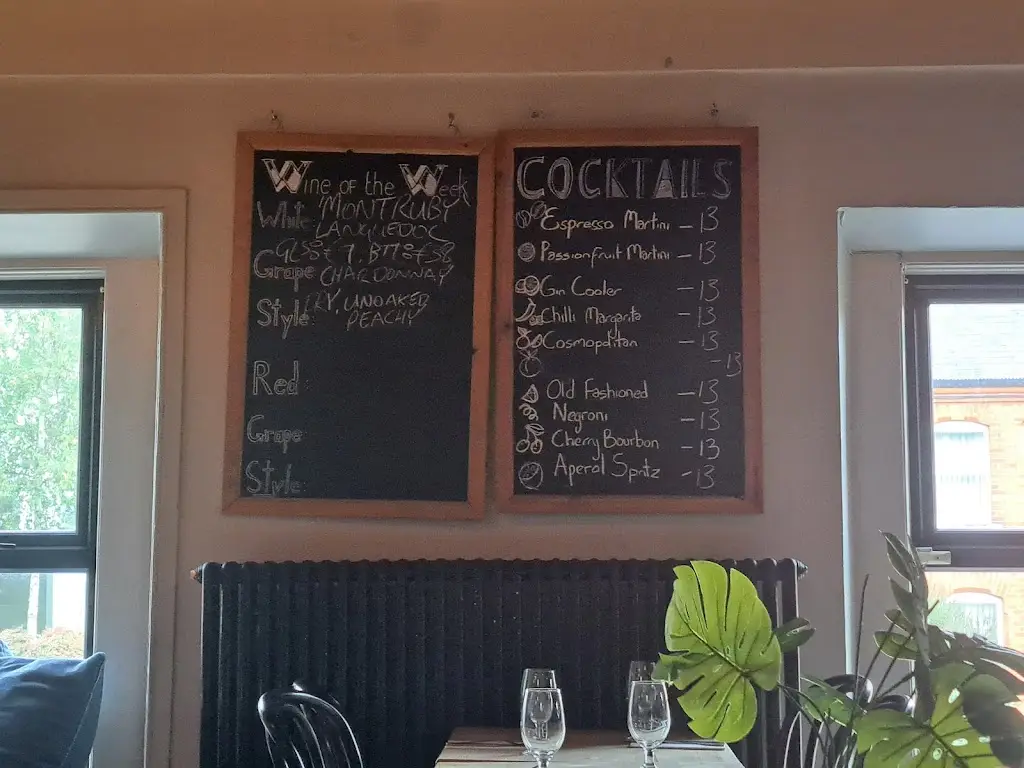 Wine of the Week
White: MONTRUBY
LANGUEDOC
GLS £9. BTTL £38
Grape: CHARDONNAY
Style: DRY, UNOAKED
PEACHY
Red:
Grape:
Style:
COCKTAILS
Espresso Martini – 13
Passionfruit Martini – 13
Gin Cooler – 13
Chilli Margarita – 13
Cosmopolitan – 13
– 13
Old Fashioned – 13
Negroni – 13
Cherry Bourbon – 13
Aperol Spritz – 13